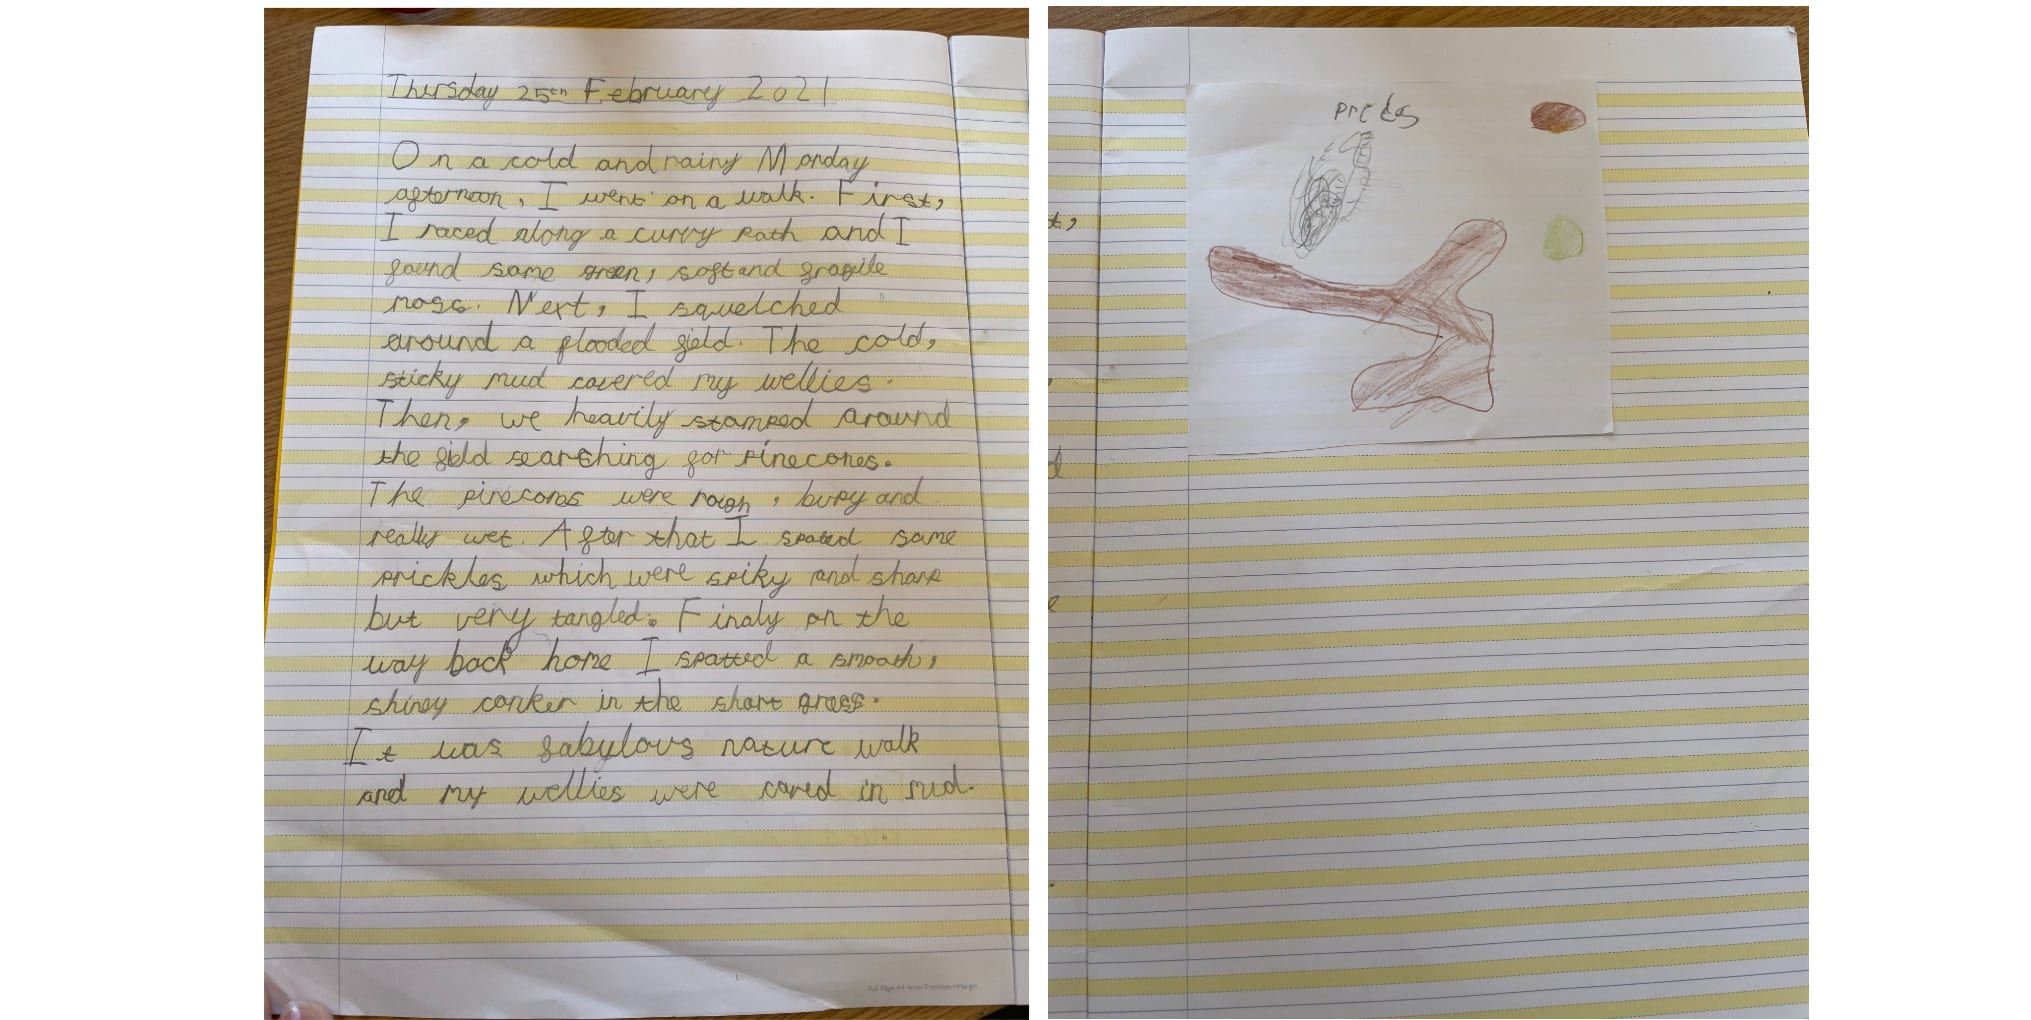 Thursday 25th February 2021
On a cold and rainy Monday
afternoon, I went on a walk. First,
I raced along a curvy path and I
found some green, soft and fragile
moss. Next, I squelched
around a flooded field. The cold,
sticky mud covered my wellies.
Then, we heavily stamped around
the field searching for pinecones.
The pinecones were rough, bumpy and
really wet. After that I spoted some
prickles which were spiky and sharp
but very tangled. Finaly on the
way back home I spotted a smooth,
shiney conker in the short grass.
It was fabulous nature walk
and my wellies were covred in mud.
Full Page A4 4mm Tramlines+Margin
t,
d
e